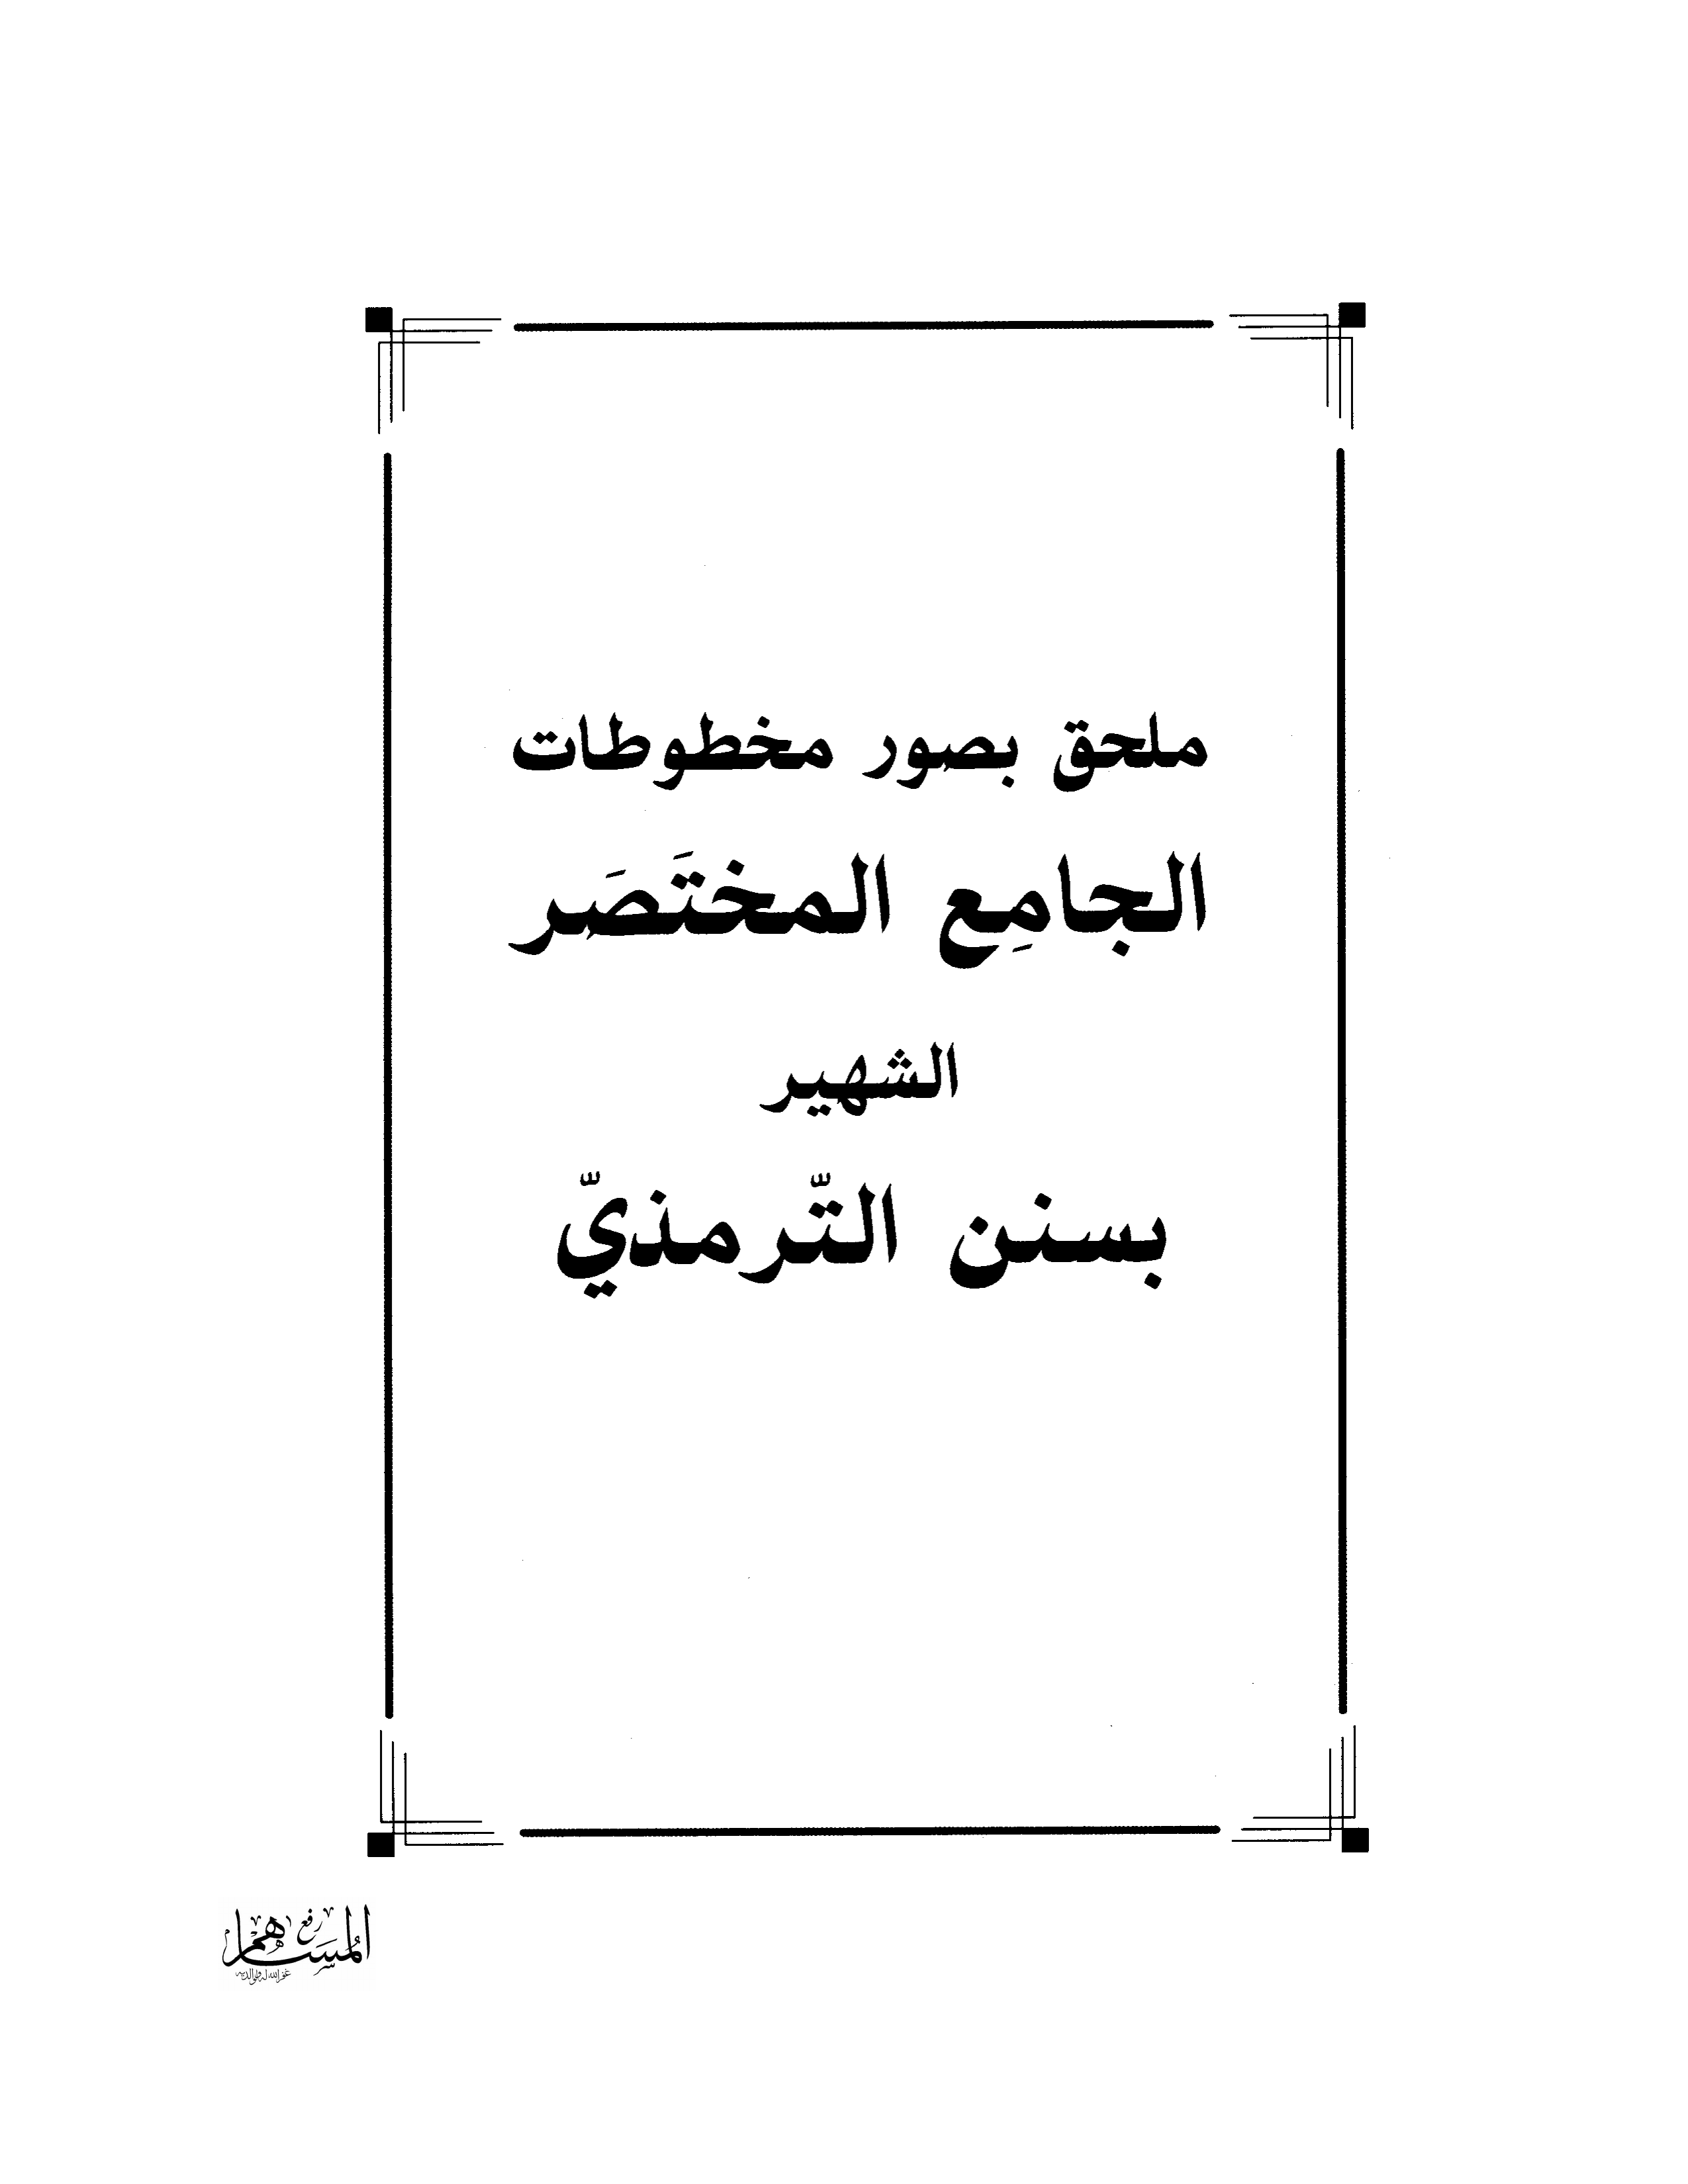 ملحق بصور مخطوطات
الجامِع المختَصَر
الشهير
بسنن التّرمذيّ
رفع
المساهم
غفر الله له ولوالديه